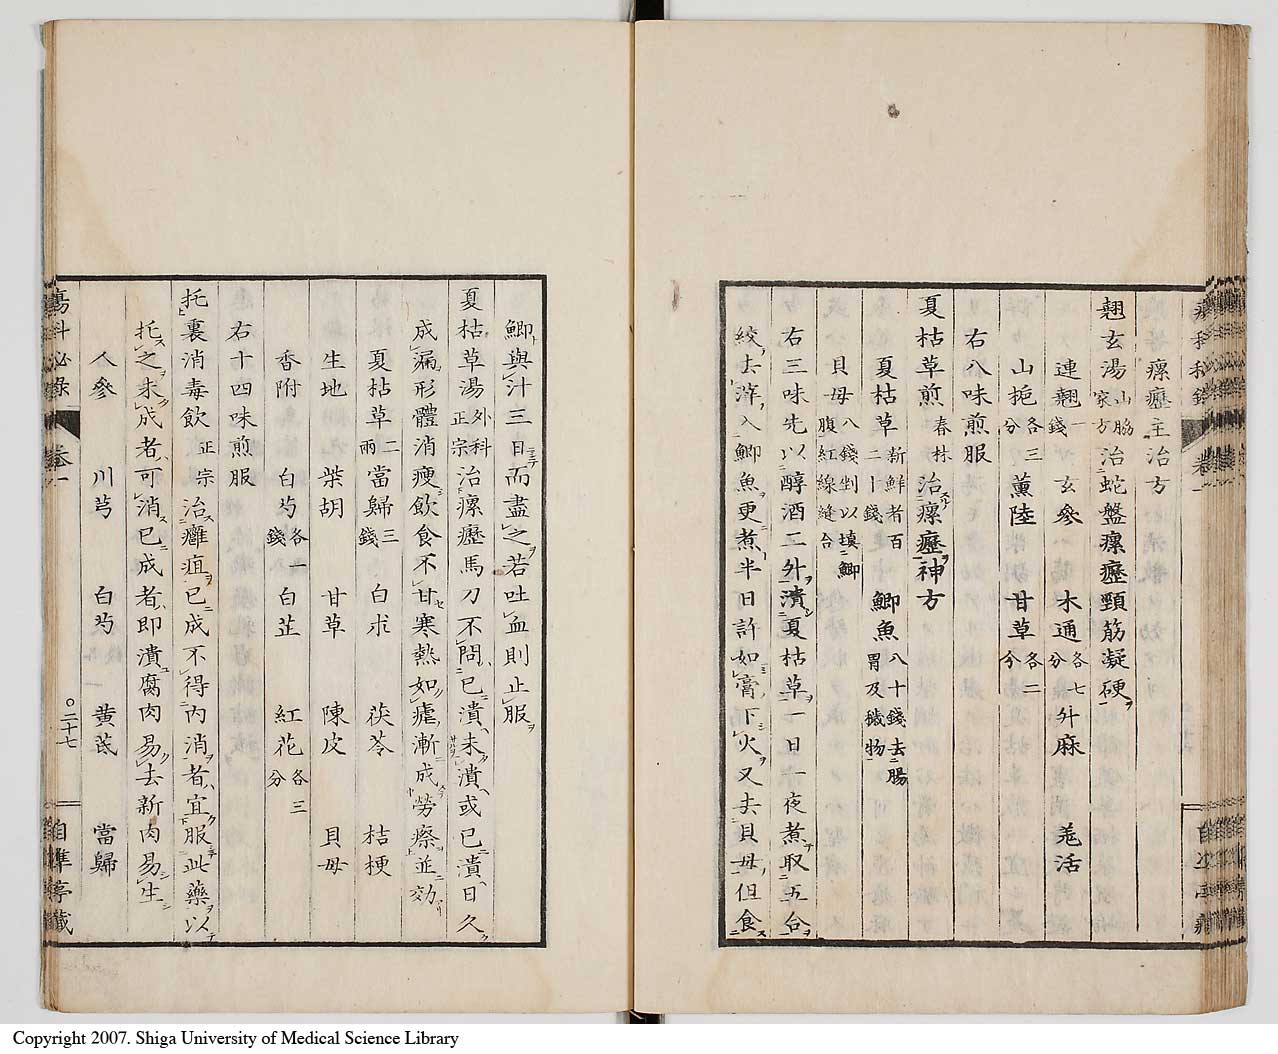 瘰癧主治方
翹玄湯 山脇家方 治蛇盤瘰癧頸筋凝硬ヲ
連翹 一錢 玄參 木通 各七分 升麻 羗活
山梔 各三分 薰陸 甘草 各二分
右八味煎服
夏枯草煎 春林 治瘰癧ヲ神方
夏枯草 新鮮者百二十錢 鯽魚 八十錢去腸胃及穢物
貝母 八錢剉以填鯽腹紅線縫合
右三味先以醇酒二升漬夏枯草一日一夜煮取五合
絞去滓入鯽魚更煮半日許如膏下火又去貝母但食
鯽與汁三日而盡之若吐血則止服
夏枯草湯 外科正宗 治瘰癧馬刀不問已潰未潰或已潰日久
成漏形體消瘦飲食不甘寒熱如瘧漸成勞瘵並効
夏枯草 二兩 當歸 三錢 白朮 茯苓 桔梗
生地 柴胡 甘草 陳皮 貝母
香附 白芍 各一錢 白芷 紅花 各三分
右十四味煎服
托裏消毒飲 正宗 治癰疽已成不得內消者宜服此藥以
托之未成者可消已成者即潰腐肉易去新肉易生
人參 川芎 白芍 黃芪 當歸
瘍科祕錄 卷一 二十七 自準亭藏